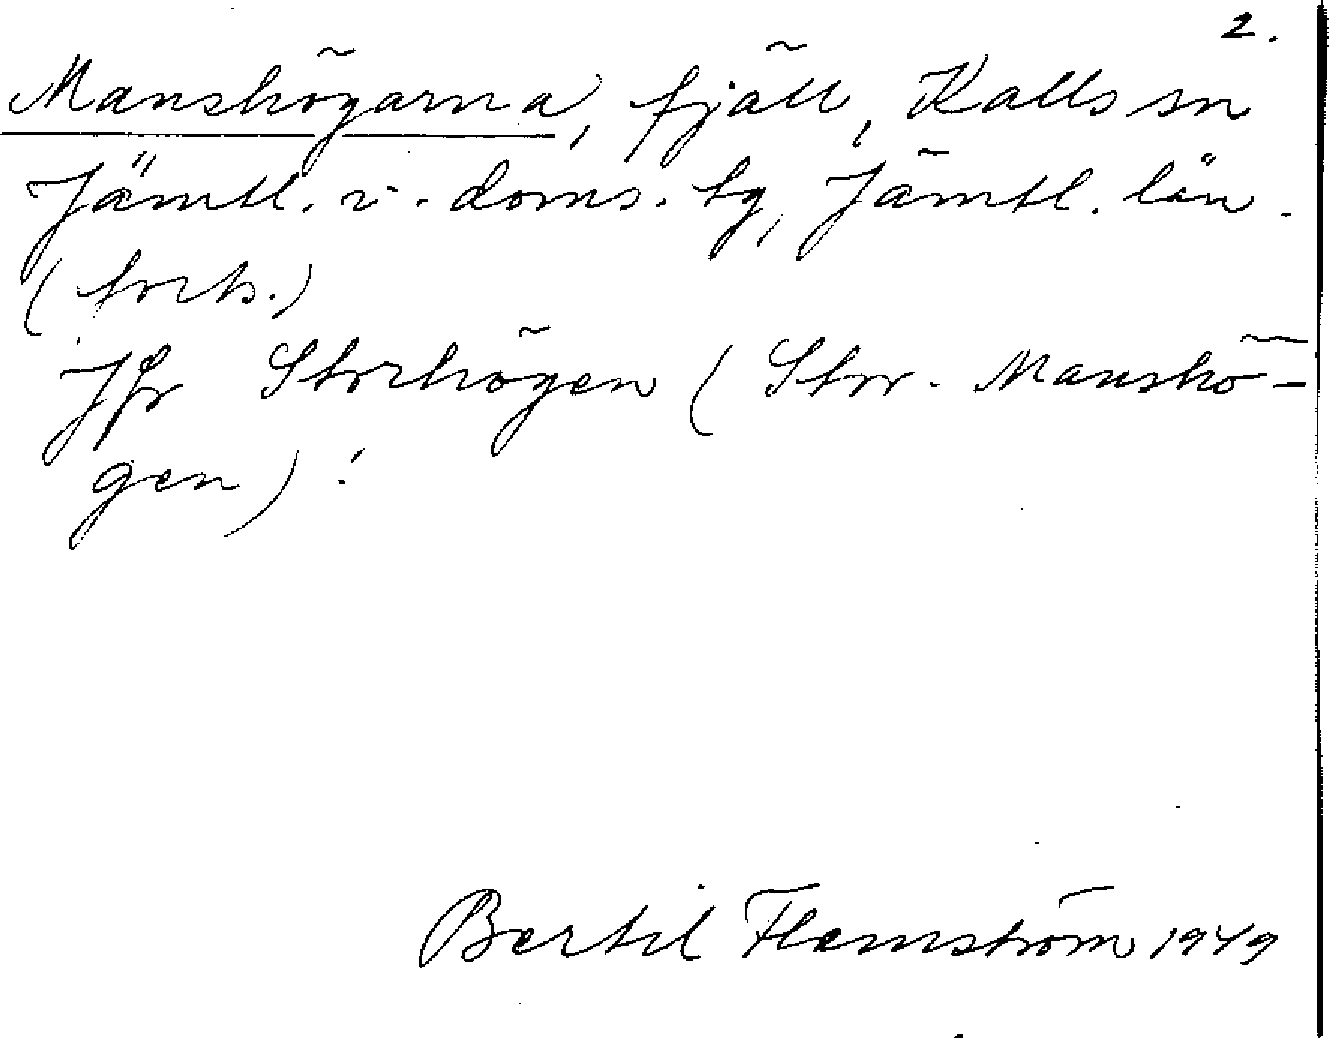 2.
Manshögarna, fjäll, Kalls sn
Jämtl. v. doms. tg, Jämtl. län.
(forts.)
Jfr Storhögen (Stor-Manshö-
gen)!
Bertil Flemström 1949